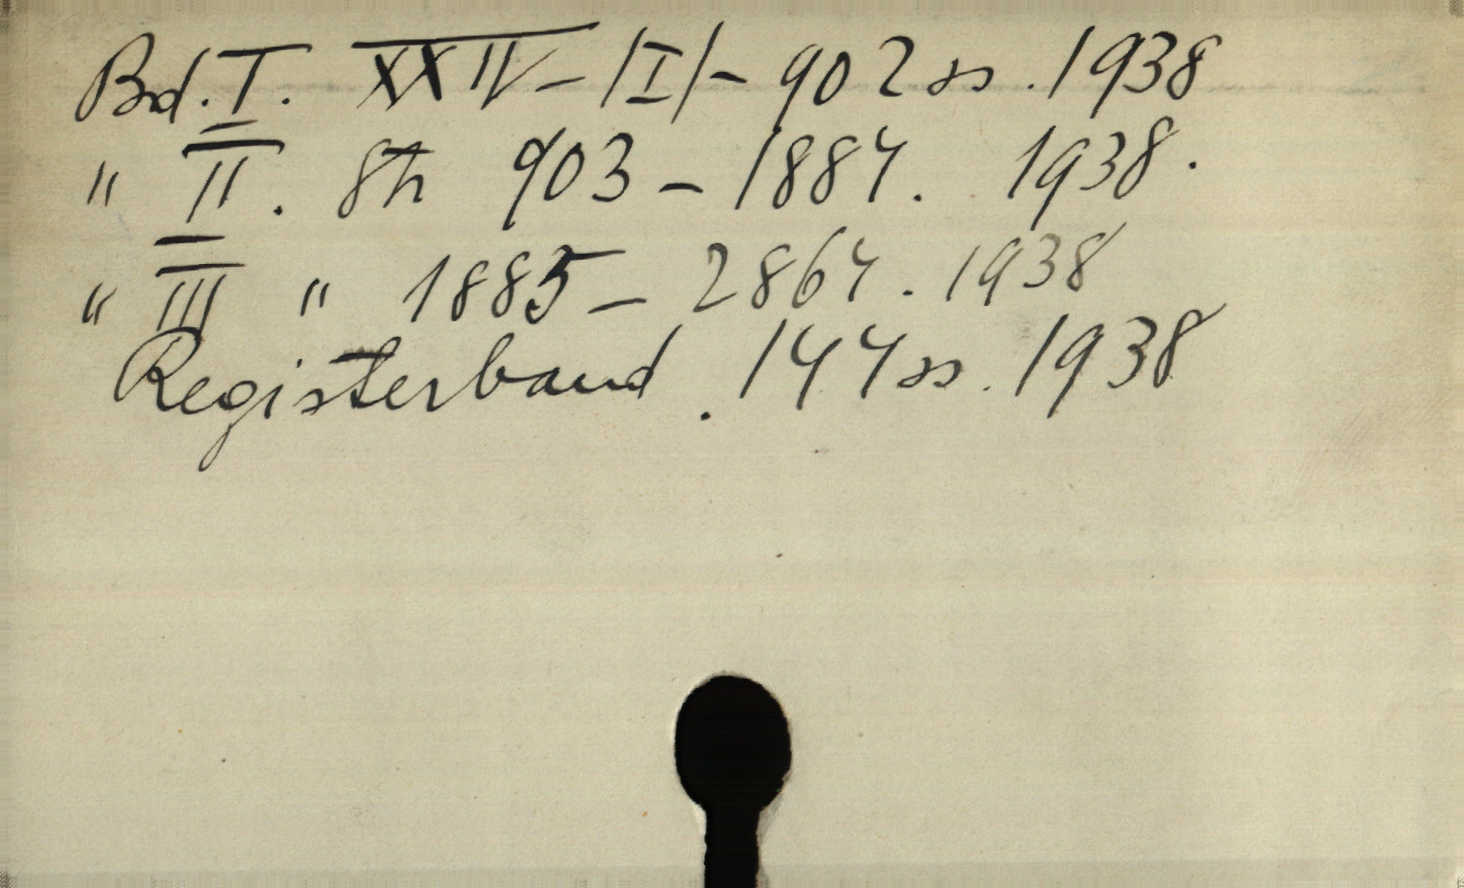 Bd. I. XXIV - /I/ - 902 ss. 1938
" II. 8h 903 - 1884. 1938.
" III " 1885 - 2864. 1938
Registerband. 144 ss. 1938